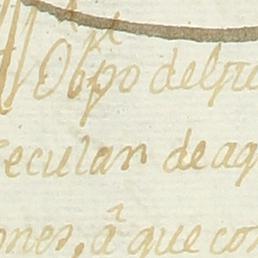 Obpo del pu
ecular de aq
ones, â que con